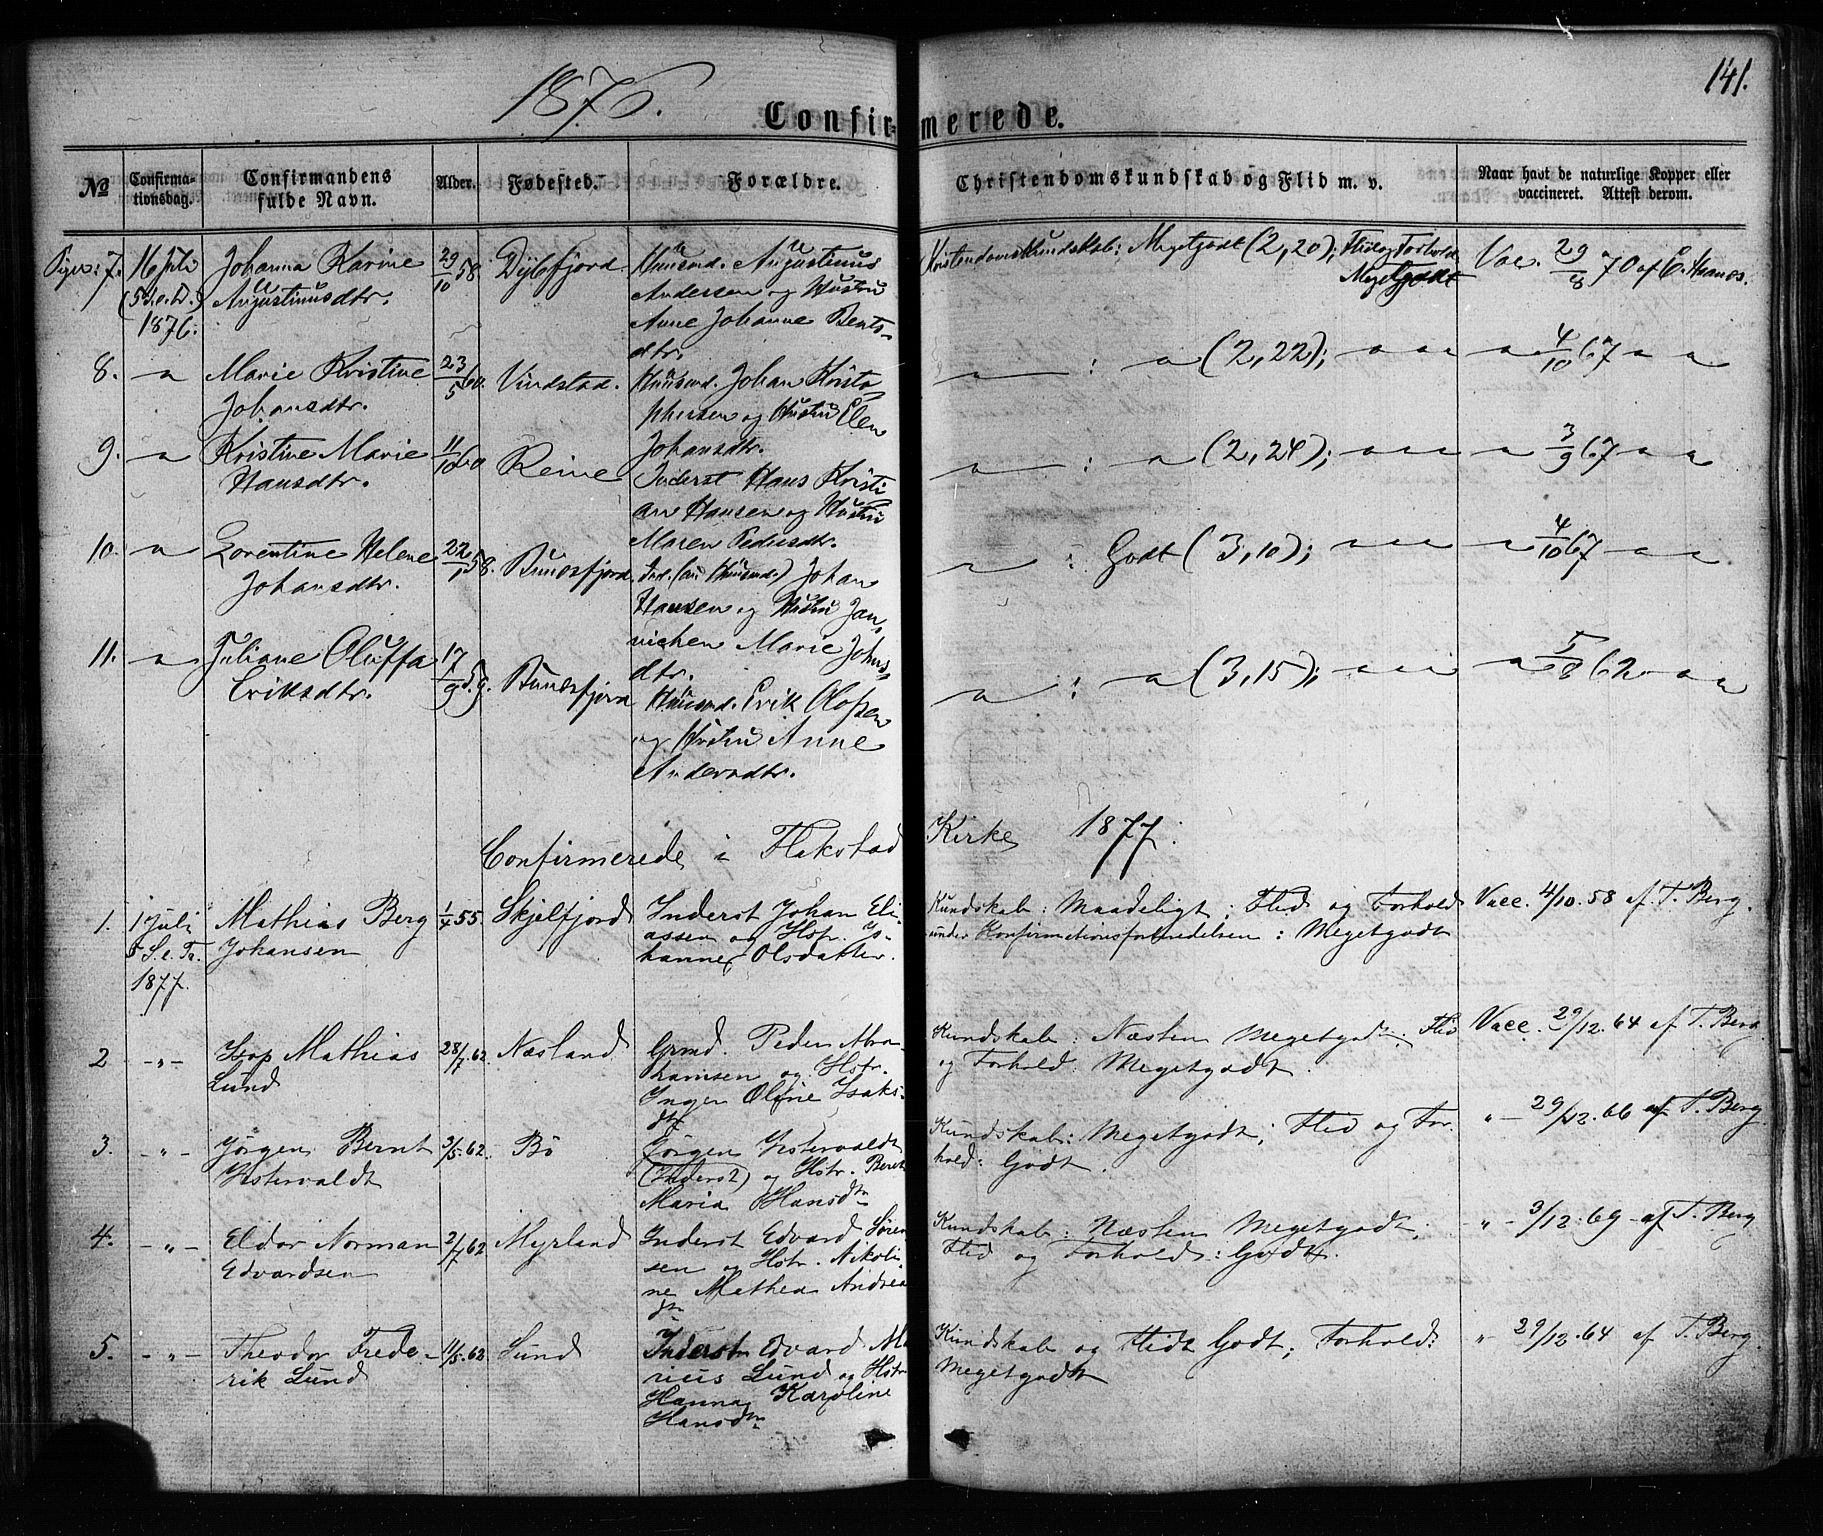 1876.
141.
Confirmerede.
№
Confirmationsdag.
Confirmandens fulde Navn.
Alder.
Fødested.
Forældre.
Christendomskundskab og Flid m. v.
Naar havt de naturlige Kopper eller vaccineret. Attest derom.
Piger: 7.
16 Juli
(5 S. e. Tr.)
1876.
Johanna Karine
Augustinusdtr.
29/10 58.
Djŭbfjord
Huusmd. Augustinus
Andersen og Hustru
Anne Johanne Bents-
dtr.
Kristendomskundskab: Megetgodt (2,20); Flid og Forhold
Megetgodt
Vac. 29/8 70 af E. Hannes.
8.
Marie Kristine
Johansdtr.
23/5 60.
Vindstad.
Huusmd. Johan Kristo
phersen og Hustru Elen
Johansdtr.
: (2,22);
4/10 67
9.
Kristine Marie
Hansdtr.
11/10 60
Reine
Inderst Hans Kristi
an Hansen og Hustru
Maren Pedersdtr.
: (2,24);
3/9 67
10.
Lorentine Helene
Johansdtr.
22/1 58.
Bundsfjord
Ind. (nu Huusmd.) Johan
Hansen og Hustru Jan-
nichen Marie Johns-
dtr.
: Godt (3,10);
4/10 67
11.
Juliane Oluffa
Eriksdtr.
17/9 59.
Bundsfjord
Huusmd. Erik Olofsen
og Hustru Anne
Andersdtr.
: (3,15);
5/8 62
Confirmerede i Flakstad Kirke 1877.
1.
1 Juli
5 S. e. Tr.
1877.
Mathias Berg
Johansen
1/4 55.
Skjelfjord
Inderst Johan Eli-
assen og Hstr. Jo-
hanne Olsdatter.
Kundskab: Maadeligt; Flid og Forhold
under Konfirmationsforberedelsen: Megetgodt
Vacc. 4/10. 58 af T. Berg.
2
-"-
Isap Mathias
Lund
28/7. 62
Næsland
Grmd. Peder Abra-
hamsen og Hstr.
Inger Oline Isaks-
dtr
Kundskab: Næsten Megetgodt. Flid
og Forhold: Megetgodt.
Vacc. 29/12. 64 af T. Berg
3.
-"-
Jørgen Bernt
Ystervaldt
3/5. 62.
Bø
Jørgen Ystervaldt
(Inderst) og Hstr. Berit
Maria Hansdtr
Kundskab: Megetgodt; Flid og For-
hold: Godt.
"- 29/12. 66 af T. Berg
4.
-"-
Eldor Norman
Edvardsen
2/7 62
Myrland
Inderst Edvard Søren
sen og Hstr. Nikoli-
ne Mathea Andrea
dtr
Kundskab: Næsten Megetgodt.
Flid og Forhold: Godt.
"- 3/12. 69 af T. Berg
5.
-"-
Theodor Frede-
rik Lund
11/5. 62
Sund
Inderst Edvard Ma
rius Lund og Hstr
Hanna Karoline
Hansdtr
Kundskab og Flid: Godt; Forhold:
Megetgodt
"- 29/12. 64 af T. Berg.